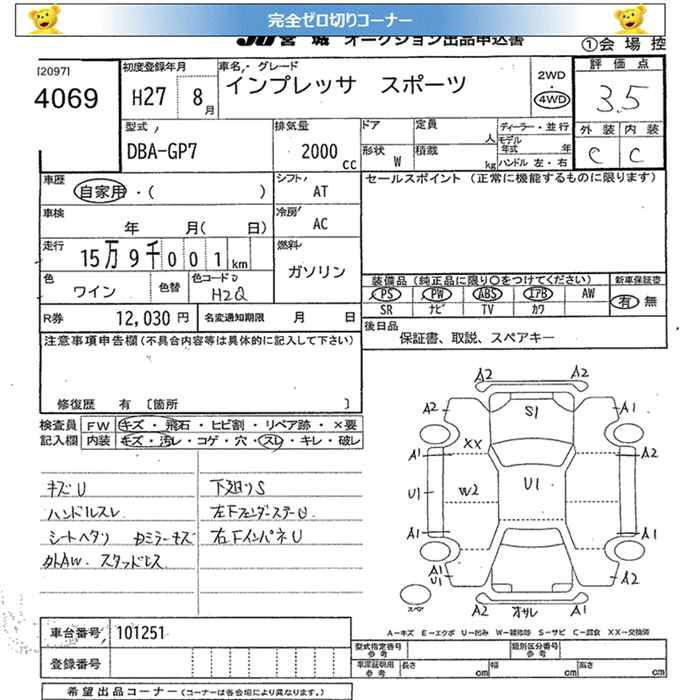 完全ゼロ切りコーナー
JU宮城 オークション出品申込書
①会場控
[2097]
4069
初度登録年月
H27 8月
車名・グレード
インプレッサ スポーツ
2WD ・ 4WD
評価点
3.5
外装 内装
C C
型式
DBA-GP7
排気量
2000 cc
ドア 定員 人
形状 W 積載 kg
ディーラー・並行
モデル年式 年
ハンドル 左・右
車歴
自家用・( )
シフト
AT
セールスポイント (正常に機能するものに限ります)
車検
年 月( 日)
冷房
AC
走行
15万9千001km
燃料
ガソリン
色
ワイン
色替
色コード
H2Q
装備品 (純正品に限り○をつけてください)
新車保証書
PS PW ABS エアB AW
有 無
SR ナビ TV カワ
R券 12,030円 名変通知期限 月 日
後日品
保証書、取説、スペアキー
注意事項申告欄(不具合内容等は具体的に記入して下さい)
修復歴 有 [箇所 ]
検査員記入欄
FW キズ・飛石・ヒビ割・リペア跡・×要
内装 キズ・汚レ・コゲ・穴・スレ・キレ・破レ
キズU
ハンドルスレ
シートヘタリ
外AW. スタッドレス
下廻りS
左Fフェンダーステー U
右FインパネU
A2 A2
A2 S1 A1
XX
A1 A2
U1 W2 U1
A1 A1
A1 U1 A2
スペア
A2 オサレ A2
A-キズ E-エクボ U-凹み W-補修跡 S-サビ C-腐食 XX-交換済
車台番号 101251
登録番号
型式指定番号 参考
類別区分番号 参考
車庫証明用 参考 長さ cm 幅 cm 高さ cm
希望出品コーナー (コーナーは各会場により異なります。)